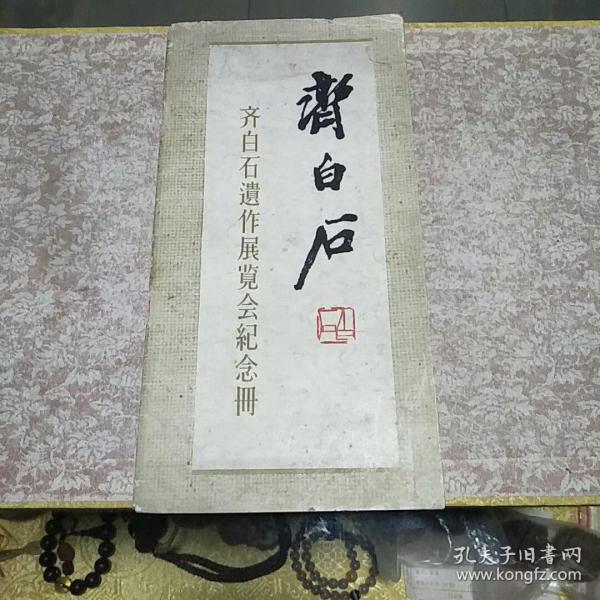 齊白石
齐白石遺作展覧会紀念冊
孔夫子旧書网
www.kongfz.com